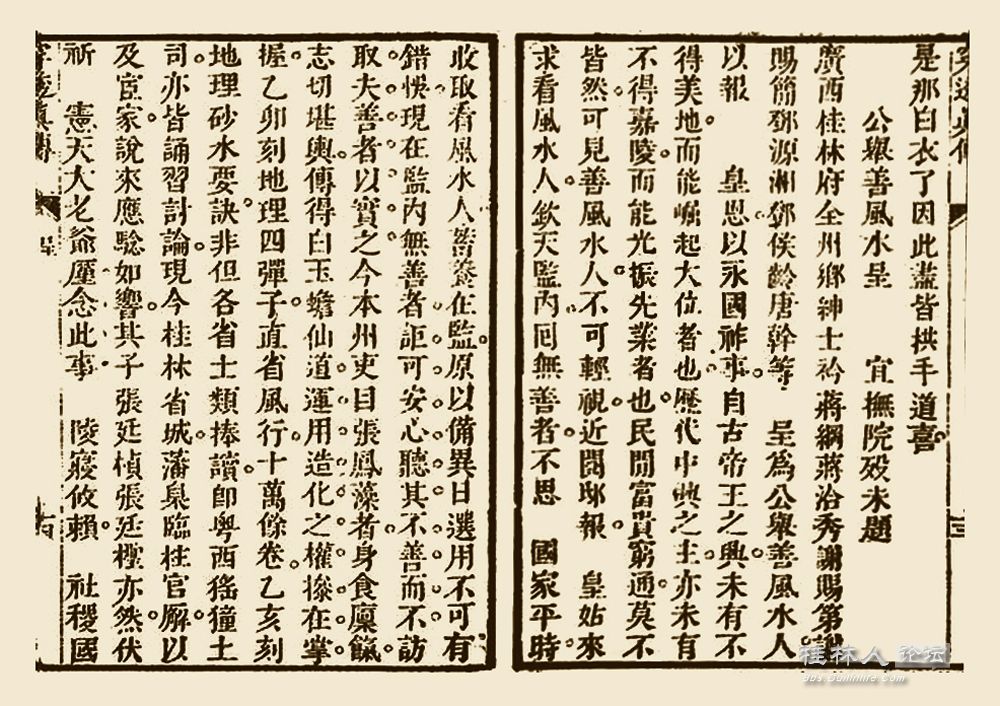 是那白衣了因此盡皆拱手道喜
公舉善風水呈　宜撫院歿未題
廣西桂林府全州鄉紳士衿蔣綱蔣治秀謝賜第
賜簡鄧源湘鄧侯齡唐幹等　呈為公舉善風水人
以報　皇恩以永國祚事自古帝王之興未有不
得美地而能崛起大位者也歷代中興之主亦未有
不得嘉陵而能光振先業者也民間富貴窮通莫不
皆然可見善風水人不可輕視近閱邸報　皇姑來
求看風水人欽天監內囘無善者不思　國家平時
收取看風水人畜養在監原以備異日選用不可有
錯悞現在監內無善者詎可安心聽其不善而不訪
取夫善者以實之今本州吏目張鳳藻者身食廩餼
志切堪輿傳得白玉蟾仙道運用造化之權摻在掌
握乙卯刻地理四彈子直省風行十萬餘卷乙亥刻
地理砂水要訣非但各省士類捧讀卽粤西猺獞土
司亦皆誦習討論現今桂林省城藩臬臨桂官廨以
及宦家說來應騐如響其子張廷楨張廷㮰亦然伏
祈　憲天大老爺厪念此事　陵寢攸賴　社稷國
桂林人 论坛
bbs.Guilinlife.com